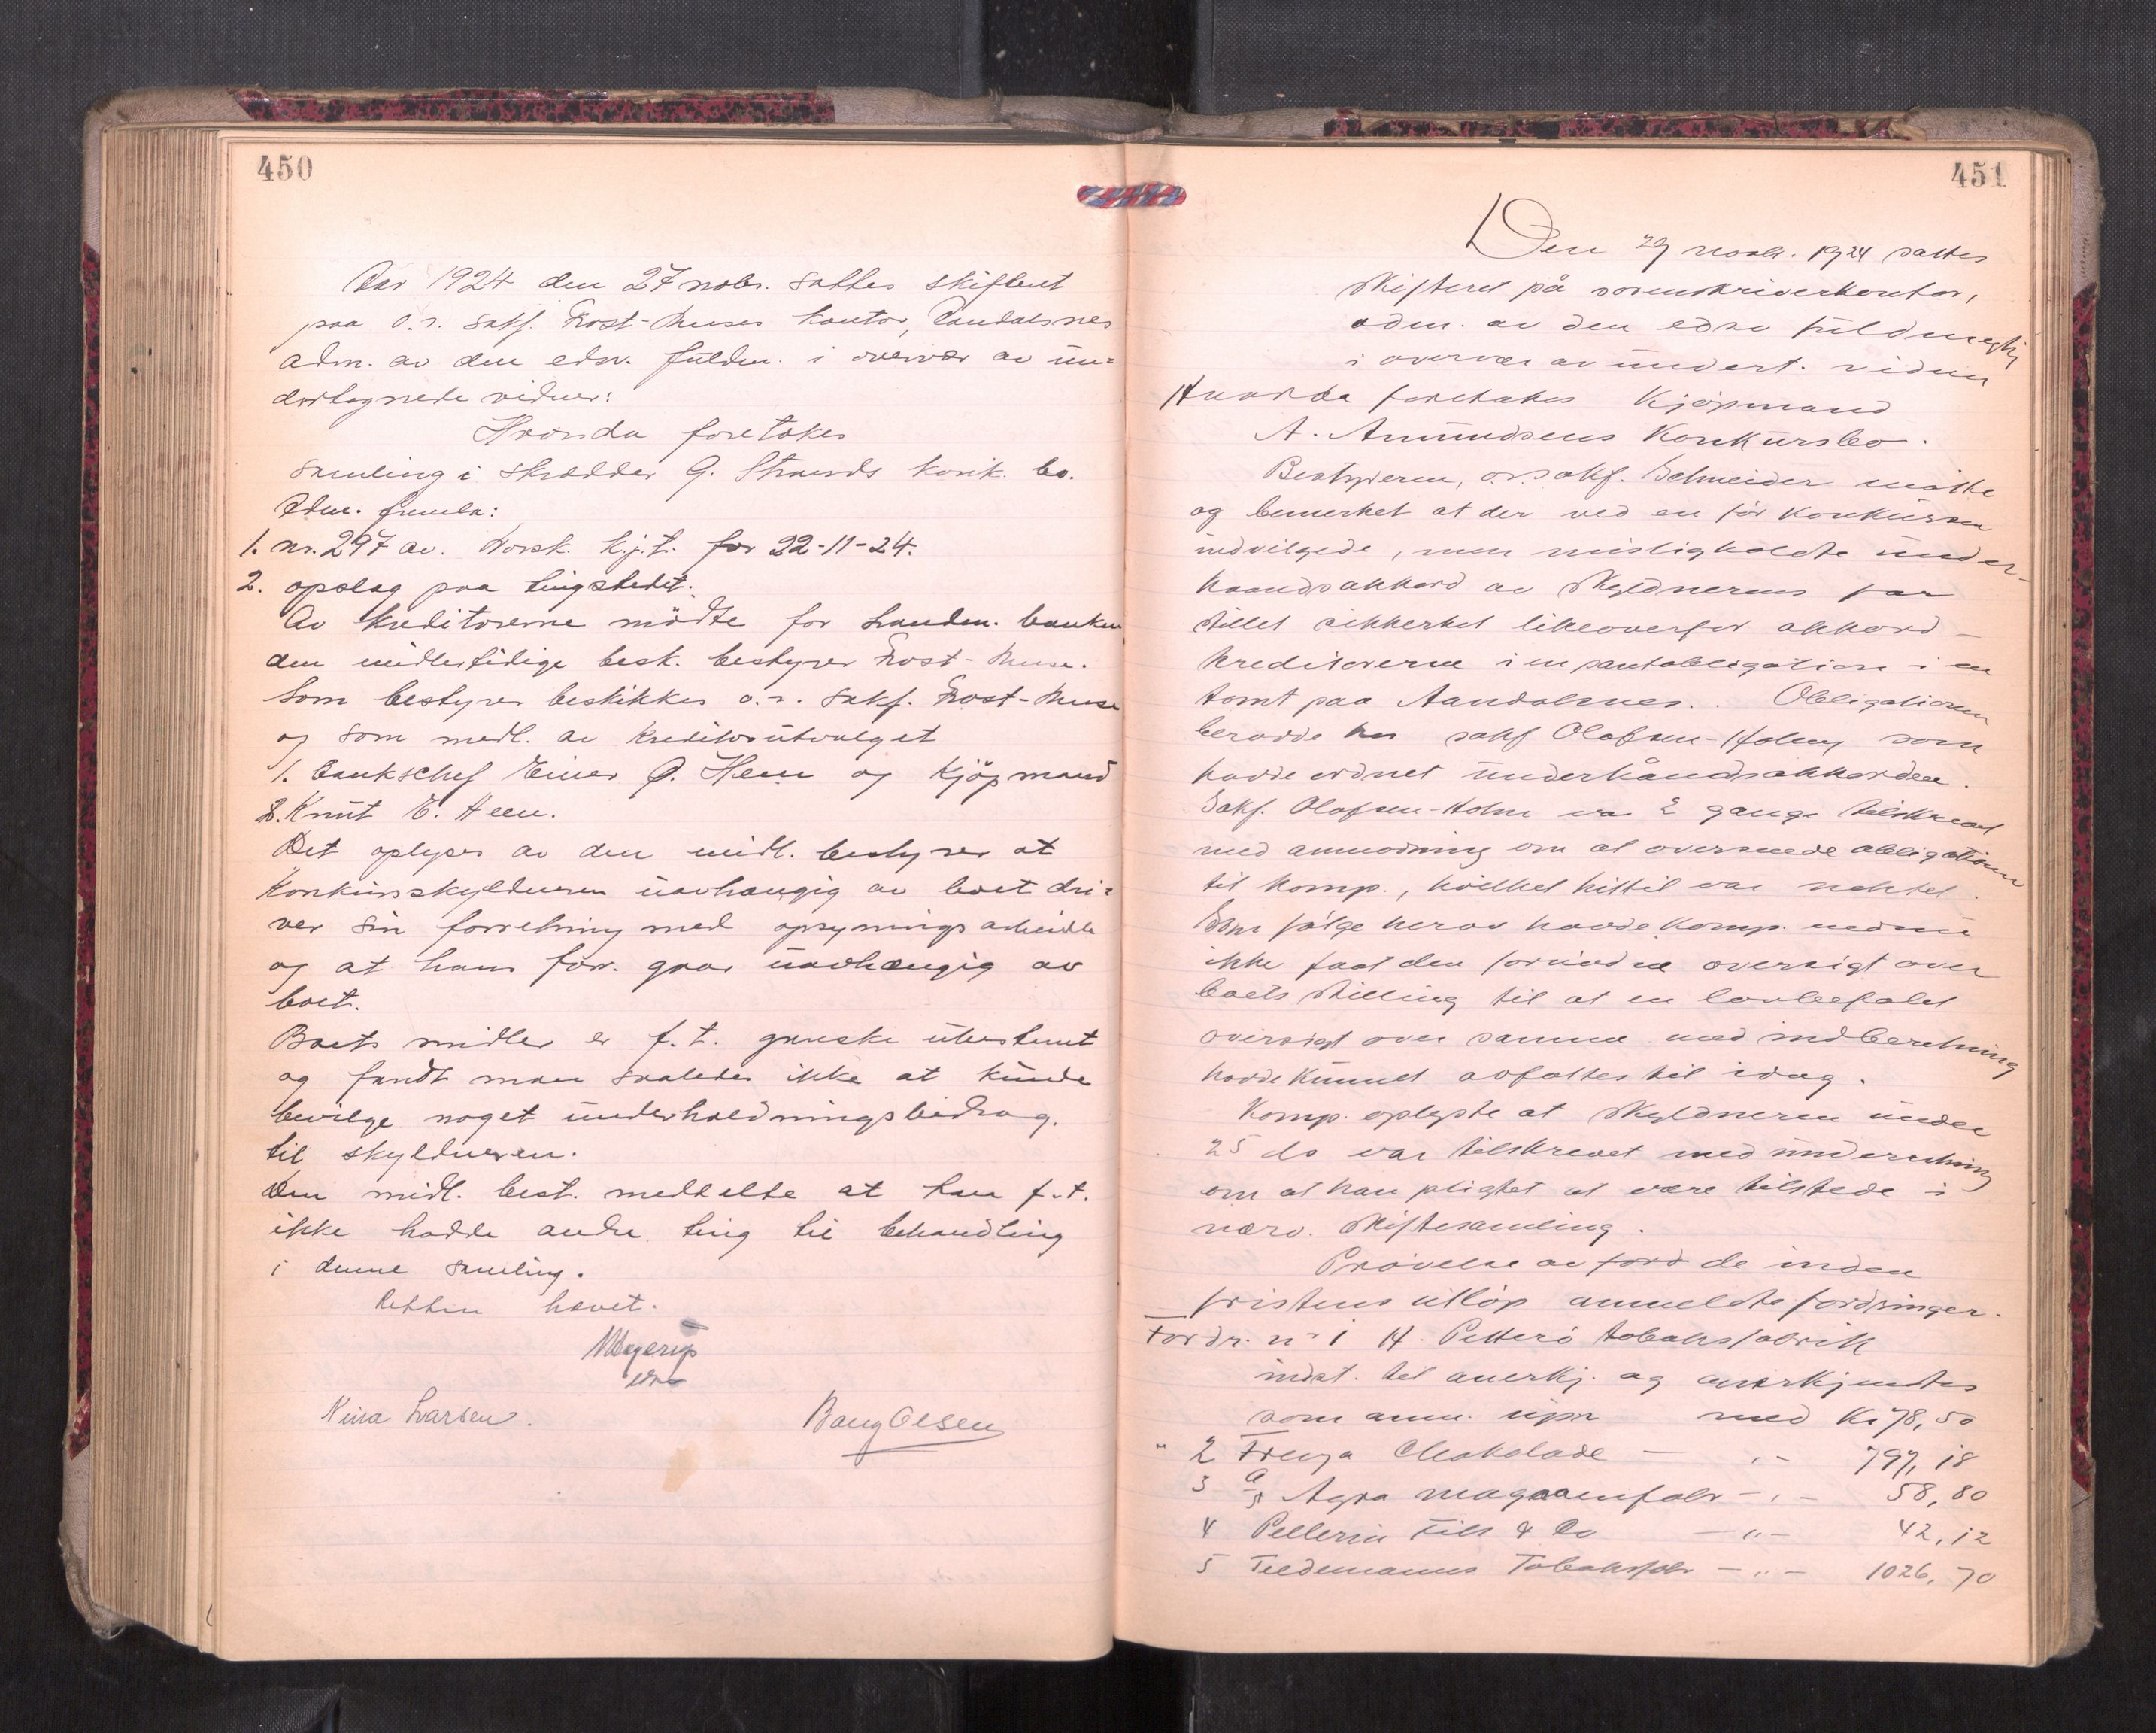 450
Aar 1924 den 27 nobr. sattes skifteret
paa o.r. sakf. Frost-Muses kontor, Aandalsnes
adm. av den edsv. fuldm. i overvær av un=
dertegnede vidner:
Hvorda foretokes
samling i skrædder G. Strands konk. bo.
Adm. fremla:
1. nr. 297 av. Norsk. kj.t. for 22-11-24.
2. opslag paa tingstedet.
Av kreditorerne mödte for Landm. banken
den midlertidige besk. bestyrer Frost-Muse.
Som bestyrer beskikkes o.r. sakf. Frost-Muse
og som medl. av kreditorutvalget
1. bankschef Einer G. Heen og Kjöpmand
2. Knut E. Heen.
Det oplyses av den midl. bestyrer at
Konkursskyldneren uavhængig av boet dri=
ver sin forretning med opsynings arbeide
og at hans forr. gaar uavhængig av
boet.
Boets midler er f.t. ganske ubestemt
og fandt man saaledes ikke at kunde
bevilge noget underholdningsbidrag.
til skyldneren.
Den midl. best. meddelte at han f.t.
ikke hadde andre ting til behandling
i denne samling.
Retten hævet.
edsv
Nina Larsen.
Bang Olsen
451
Den 29 novbr. 1924 sattes
skifteret på sorenskriverkontor,
adm. av den edsv fuldmegtig
i overvær av undert. vidner
Hvorda foretakes Kjøpmand
A. Amundsens Konkursbo.
Bestyreren, o.r.sakf. Schneider møtte
og bemerket at der ved en før konkursen
indvilgede, men misligholdte under-
haandsakkord av skyldneren var
stillet sikkerhet likeoverfor akkord-
kreditorerne i en pantobligation i en
tomt paa Aandalsnes. Obligationen
beroede hos sakf Olafsen-Holm som
havde ordnet underhåndsakkorden.
Sakf. Olafsen-Holm var 2 gange tilskrevet
med anmodning om at oversende obligationen
til komp., hvilket hittil var negtet.
Som følge herav havde komp. endnu
ikke faat den fornødne oversigt over
boets stilling til at en lovbefalet
oversigt over samme med indberetning
havde kunnet avfattes til idag.
Komp. oplyste at skyldneren under
25 ds var tilskrevet med underretning
om at han pligtet at være tilstede i
nærv. skiftesamling.
Prøvelse av ford de inden
fristens utløp anmeldte fordringer.
Fordr. nr 1 H. Petterö tobaksfabrik
indst. til anerkj. og anerkjendtes
som anm. upr med Kr 78,50
" 2 Freya Chokolade — „ — 797,18
3 A/S Agra margarinfabr — „ — 58,80
4 Pellerin Fils & Co — „ — 42,12
5 Tiedemanns Tobaksfabr — „ — 1026,70